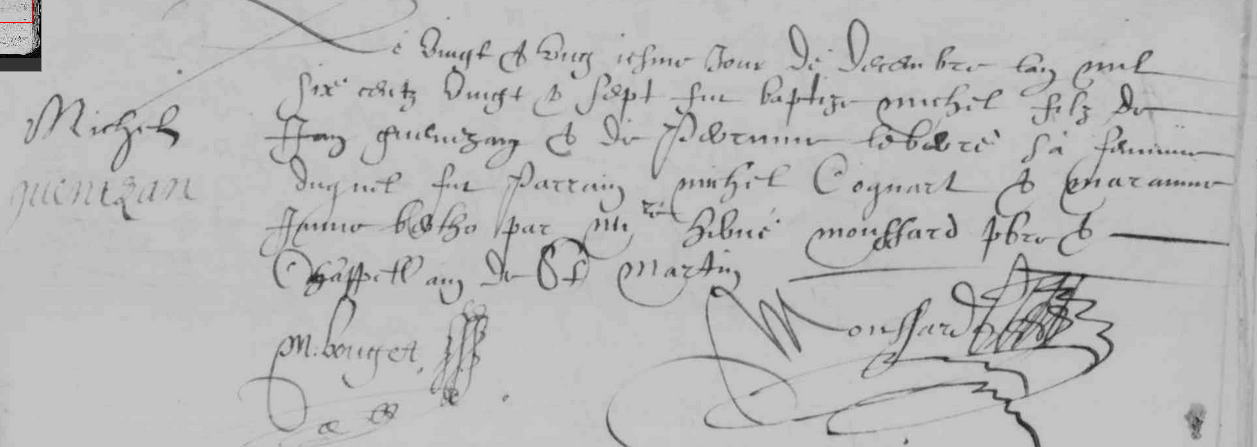 Michel
guenezan
Le Vingt & Vng iesme Jour De Decembre lan mil
six centz Vingt & sept fut baptize michel filz de
Jan guenezan & de Perrinne lebevre sa femme
duquel fut Parrain michel Coquart & marainne
Janne betho par mire hibue moussard pbre &
Chappellain de St Martin
M. bouget
Moussard